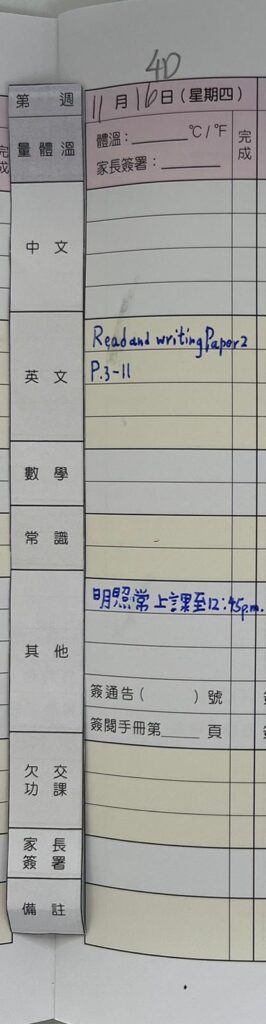 4D
第 週
11月16日(星期四)
量體溫
體溫：_______℃/℉
家長簽署：_______
完成
完成
中文
英文
Read and writing Paper2
P.3-11
數學
常識
其他
明照常上課至12:45p.m.
簽通告( )號
簽閱手冊第____頁
欠交
功課
家長
簽署
備註